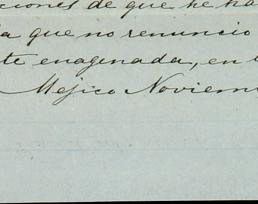 ciones de que he ha
a que no renuncio
te enagenada, en
Mejico Noviem